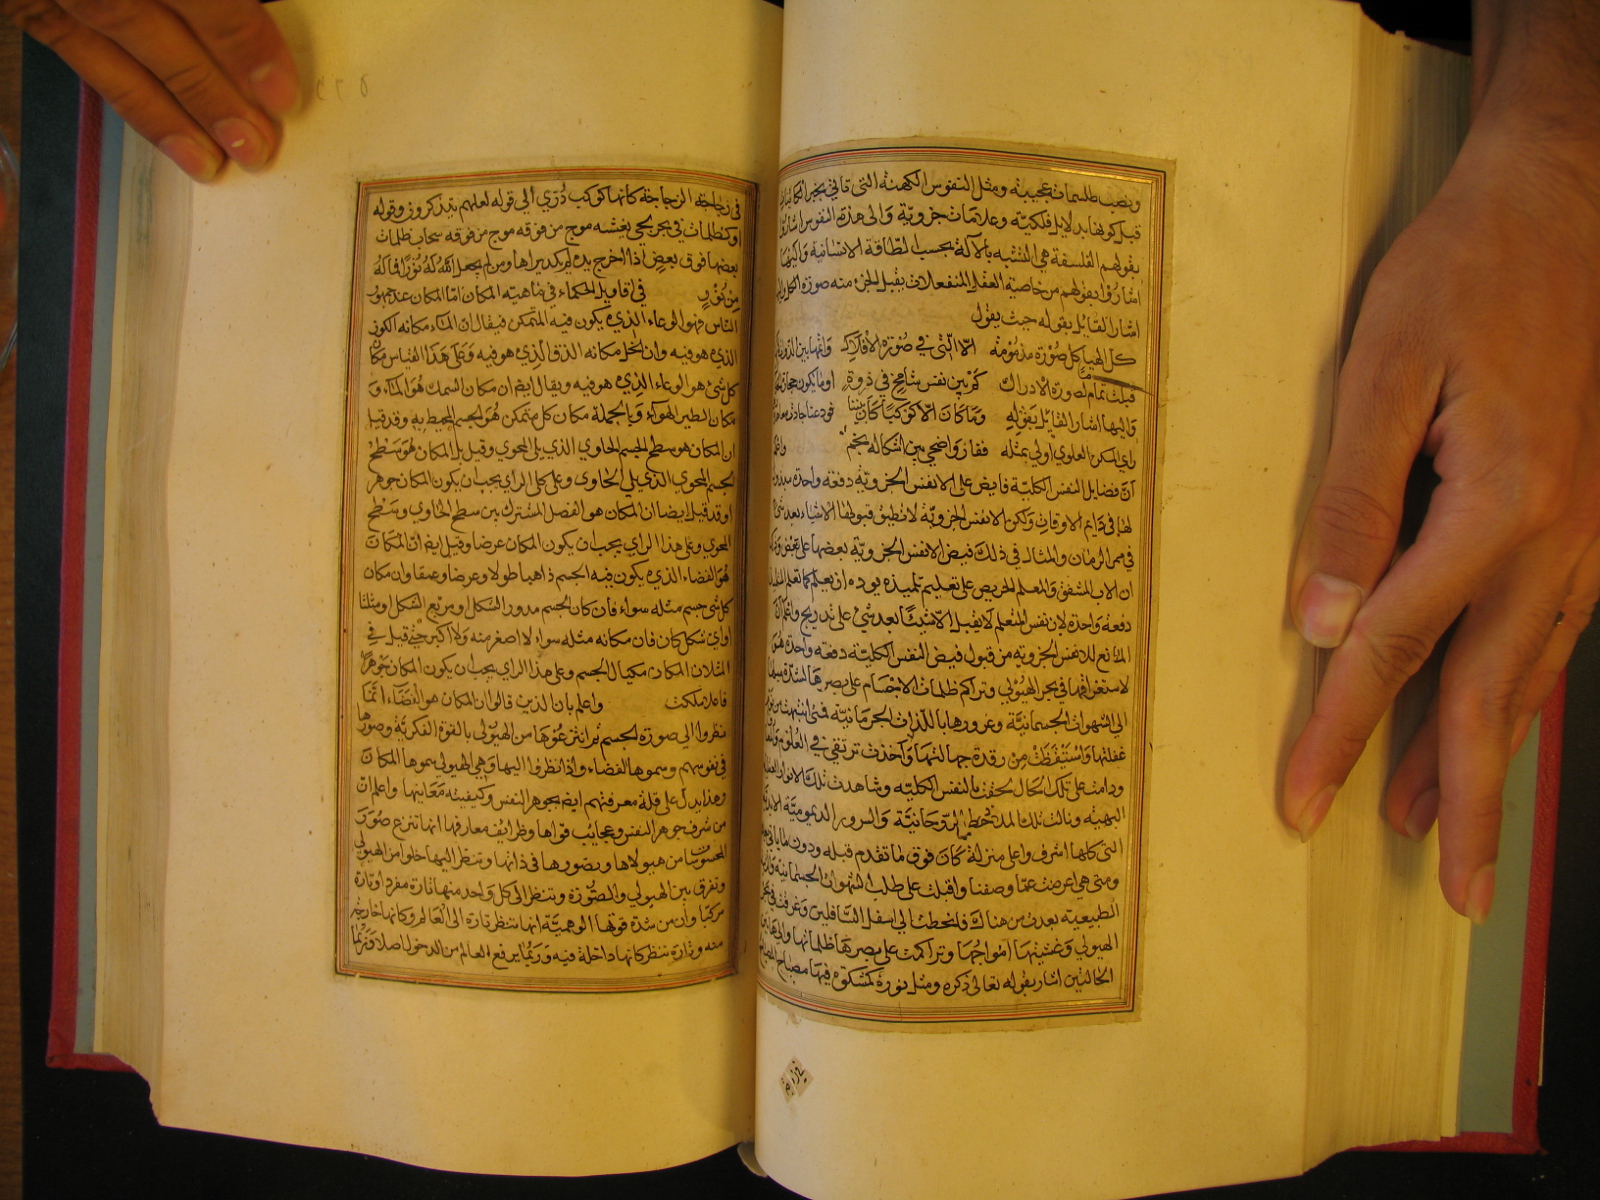 وينصب طلسمات عجيبة ومثل النفوس الكهنة التي تاتي بخبر الكائنات
قبل كونها بدلايل فلكيّة وعلامات جزويّة والى هذه النفوس اشاروا
بقولهم الفلسفة هي التشبه بالآلة بحسب الطاقة الانسانية واليها
اشاروا بقولهم من خاصية العقل المنفعلات يقبل الجزء منه صورة الكل واليها
اشار القايل بقوله حيث يقول
كل الهيا كل صورة مذمومة الا التي في صورة الافلاك
قبلت تمام لصورة الادراك كم بين نفس شامخ في ذروة
واليها اشار القايل بقوله وما كان الا كوكبا كان بيننا
راي المسكن العلوي اولى بمثله ففاز واضحى بين اشكاله نجم
انّ فضايل النفس الكلية فايض على الانفس الجزوية دفعة واحدة
لها في دايم الاوقات ولكن الانفس الجزوية لا تطيق قبولها الا شيا بعد شي
في ممر الزمان والمثال في ذلك فيض الانفس الجزوية بعضها على بعض
ان الاب المشفق والمعلم الحريص على تعليم تلميذه يود ان يعلم كل ما
دفعة واحدة لان نفس المتعلم لا يقبل الا شيئًا بعد شي على تدريج واعلم ان
المانع للانفس الجزوية من قبول فيض النفس الكلية دفعة واحدة هو
لاستغراقها في بحر الهيولى وتراكم ظلمات الاجسام على بصرها لشدة ميلها
الى الشهوات الجسمانيّة وغرورها باللذات الجرمانية فمتى انتبهت من نوم
غفلتها واستيقظت من رقدة جهالتها واخذت ترتقي في العلوم
ودامت على تلك الحال لحقت بالنفس الكلية وشاهدت تلك الانوار العقلية
البهية ونالت تلك الملاذ الروحانية والسرور الديمومية الابدية
التي كلها اشرف واعلى منزلة كان فوق ما تقدم قبله ودون ما ياتي
ومتى هي اعرضت عمّا وصفنا واقبلت على طلب الشهوات الجسمانية
الطبيعية بعدت من هناك فانحطت الى اسفل السافلين وغرقت في بحر
الهيولى وغشيتها امواجها وتراكمت على بصرها ظلماتها والى هاتين
الحالتين اشار بقوله تعالى ذكره ومثل نوره كمشكوة فيها مصباح المصباح
في زجاجة الزجاجة كانها كوكب دُرّي الى قوله لعلهم يتذكرون وقوله
او كظلمات في بحر لجي يغشيه موج من فوقه موج من فوقه سحاب ظلمات
بعضها فوق بعض اذا اخرج يده لم يكد يراها ومن لم يجعل الله له نورًا فما له
من نور في اقاويل الحكماء في ماهية المكان امّا المكان عند جمهور
الناس فهو الوعاء الذي يكون فيه المتمكن فيقال ان الماء مكانه الكوز
الذي هو فيه وان الخل مكانه الزق الذي هو فيه وعلى هذا القياس مكان
كل شئ هو الوعاء الذي هو فيه ويقال ايضا ان مكان السمك هو الماء و
مكان الطير الهوآء وبالجملة مكان كل متمكن هو الجسم المحيط به وقد قيل
ان المكان هو سطح الجسم الحاوي الذي يلي المحوي وقيل بل المكان هو سطح
الجسم المحوي الذي يلي الحاوى وعلى كلى الراي يجب ان يكون المكان جوهر
او قد قيل ايضا ان المكان هو الفصل المشترك بين سطح الحاوي وسطح
المحوي وعلى هذا الراي يجب ان يكون المكان عرضا وقيل ايضا ان المكان
هو الفضاء الذي يكون فيه الجسم ذاهبا طولا وعرضا وعمقا وان مكان
كل شي جسم مثله سواء فان كان الجسم مدور الشكل او مربع الشكل او مثلثا
او اي شكل كان فان مكانه مثله سواء لا اصغر منه ولا اكبر حتى قيل في
المثل ان المكان مكيال الجسم وعلى هذا الراي يجب ان يكون المكان جوهرًا
واعلم بان الذين قالوا ان المكان هو الفضاء انّما
نظروا الى صورة الجسم ثم انتزعوها من الهيولى بالقوة الفكرية وصورها
في نفوسهم وسموها الفضاء واذا نظروا اليها وهي في الهيولى سموها المكان
وهذا يدل على قلة معرفتهم ايضا بجوهر النفس وكيفيته معاينها واعلم ان
من شرف جوهر النفس وعجايب قواها وظرائف معارفها انها تنزع صور
المحسوسات من هيولاها ويصورها في ذاتها وتنظر اليها خلوا من الهيولى
وتفرق بين الهيولى والصورة وتنظر الى كل واحد منها تارة مفردا وتارة
مركبا وان من شدة قوتها الوهميّة انها تنظر تارة الى العالم وكانها خارجة
منه وتارة تنظر كانها داخلة فيه وربما يرفع العالم من الدخول اصلا فربما